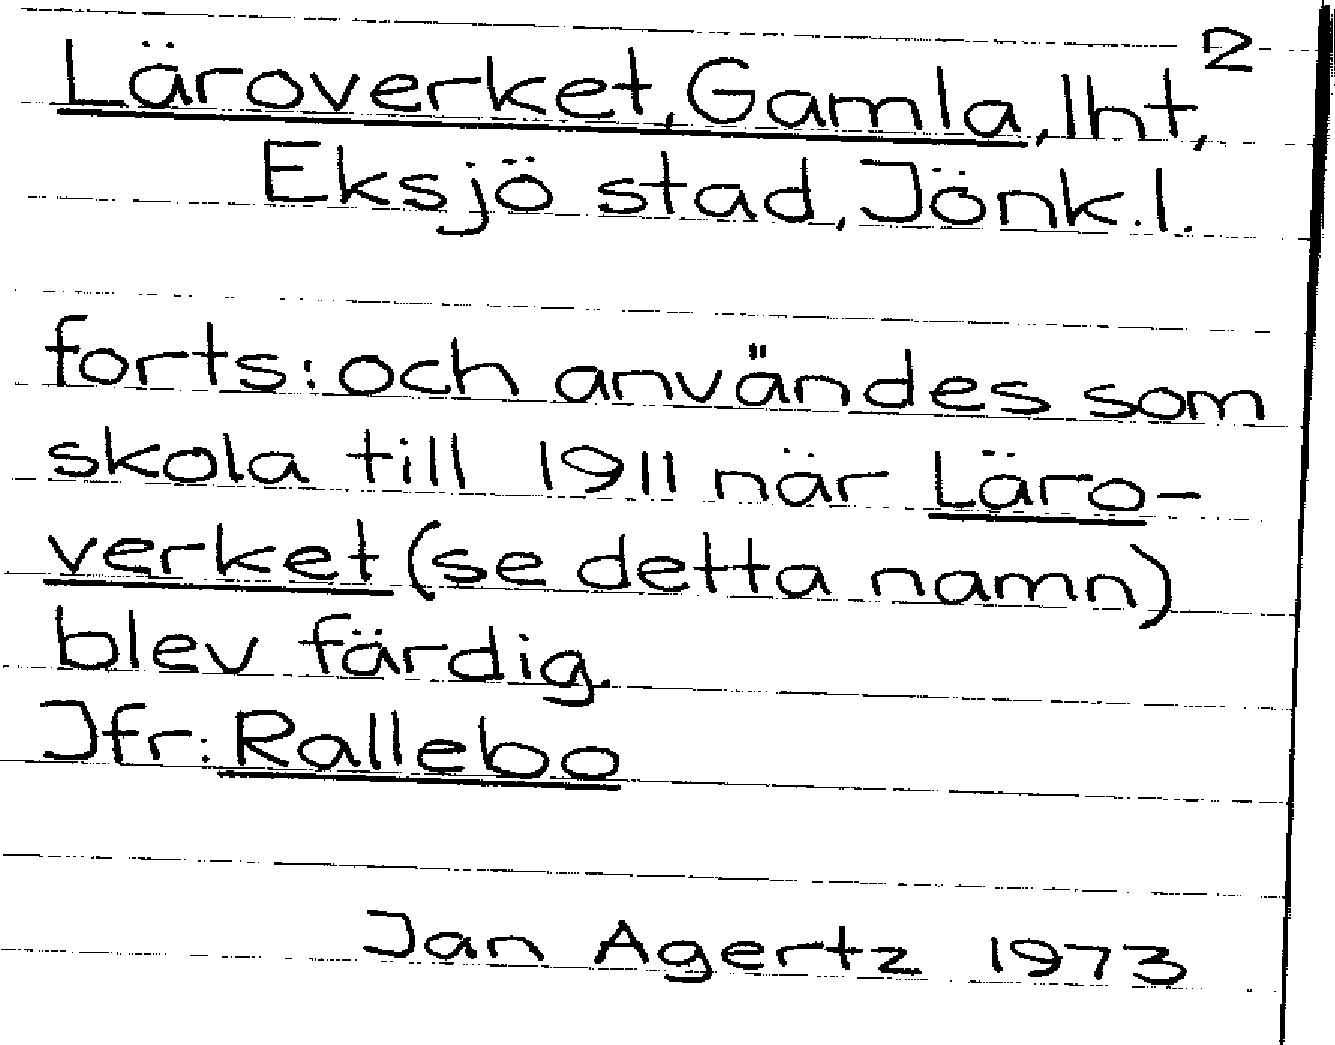 2
Läroverket, Gamla, lht,
Eksjö stad, Jönk.l.
forts: och användes som
skola till 1911 när Läro-
verket (se detta namn)
blev färdig.
Jfr: Rallebo
Jan Agertz 1973